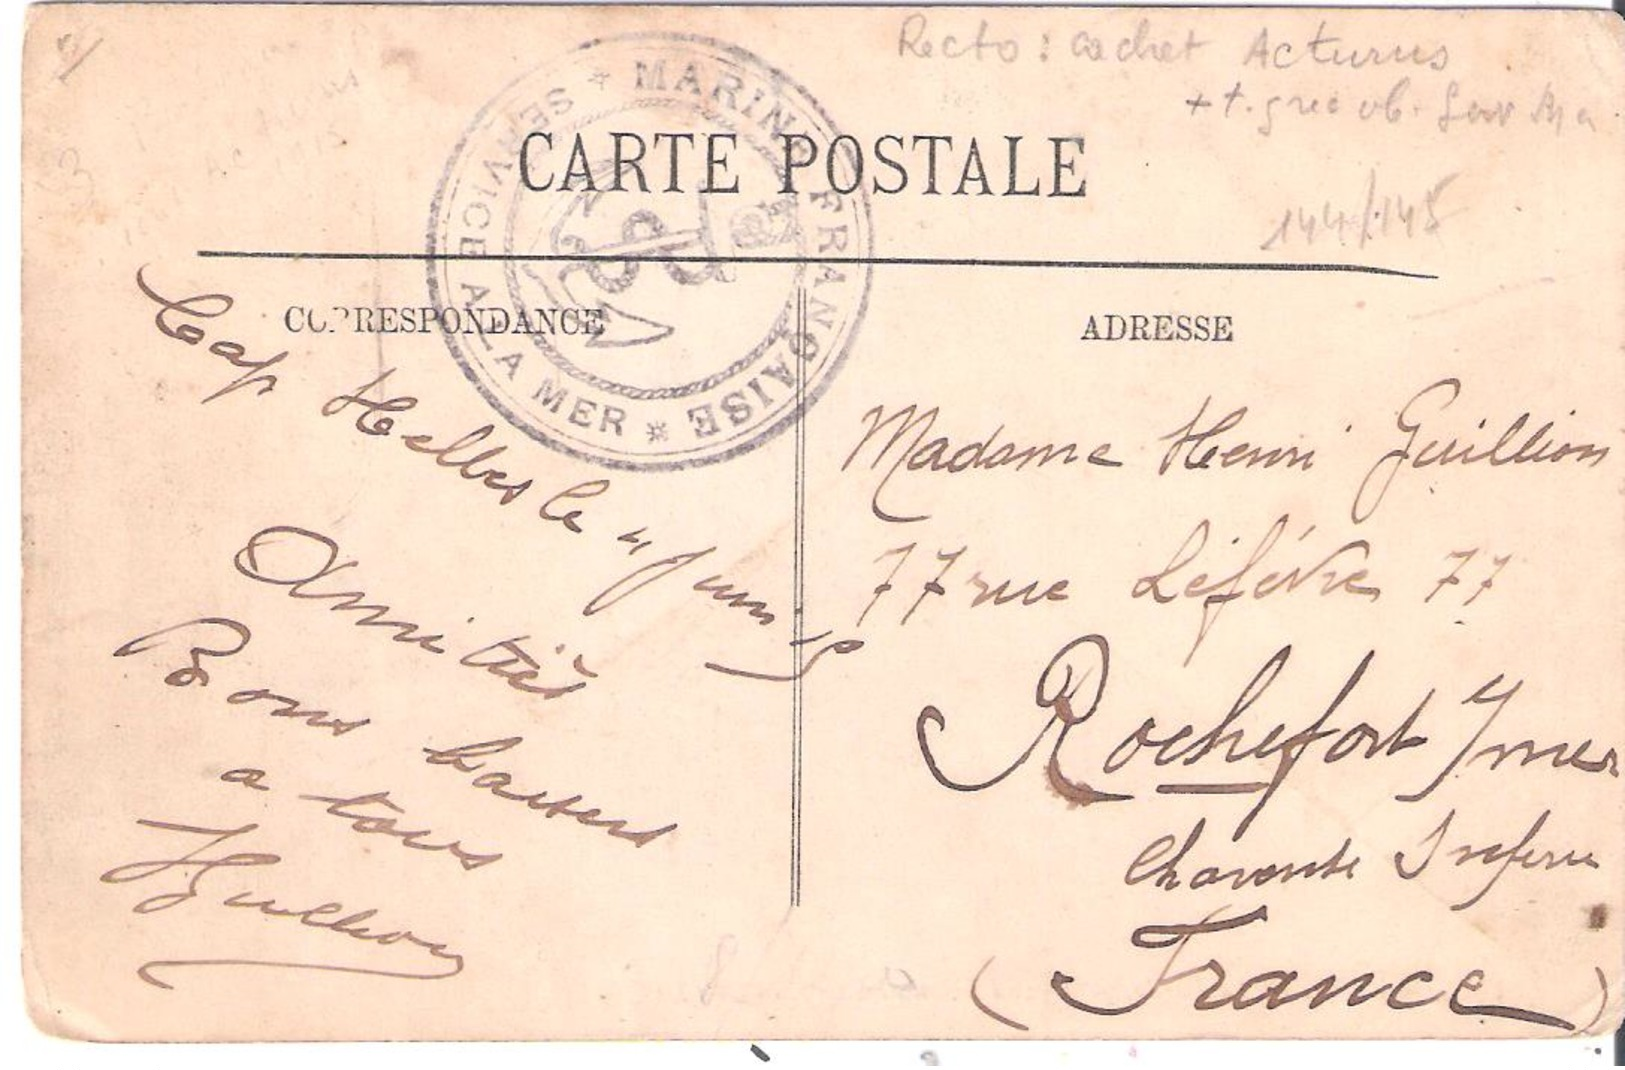 Recto : cachet Acturus
+ t. grec ob.
144/145
MARINE FRANÇAISE * SERVICE A LA MER *
CARTE POSTALE
CORRESPONDANCE
Cap Helles le 4 Juin
Amitiès
Bons baisers
a tous
HGuillion
ADRESSE
Madame Henri Guillion
77 rue Léfévre 77
Rochefort s/mer
Charente Inferie
(France)